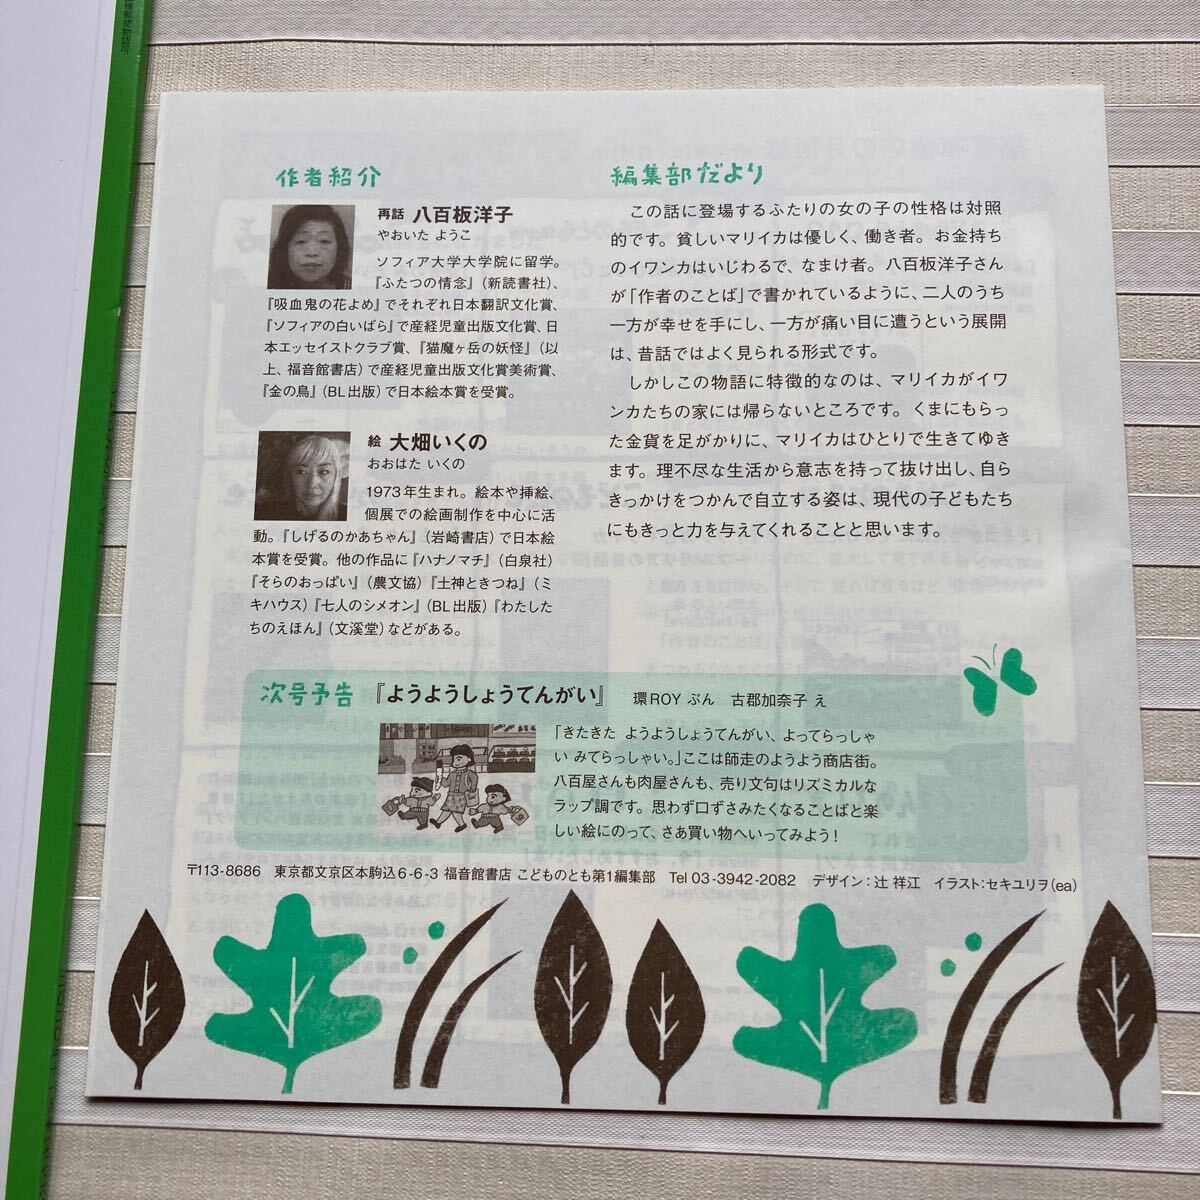 種郵便物認可
作者紹介
再話 八百板洋子
やおいた ようこ
ソフィア大学大学院に留学。
『ふたつの情念』(新読書社)、
『吸血鬼の花よめ』でそれぞれ日本翻訳文化賞、
『ソフィアの白いばら』で産経児童出版文化賞、日
本エッセイストクラブ賞、『猫魔ヶ岳の妖怪』(以
上、福音館書店)で産経児童出版文化賞美術賞、
『金の鳥』(BL出版)で日本絵本賞を受賞。
絵 大畑いくの
おおはた いくの
1973年生まれ。絵本や挿絵、
個展での絵画制作を中心に活
動。『しげるのかあちゃん』(岩崎書店)で日本絵
本賞を受賞。他の作品に『ハナノマチ』(白泉社)
『そらのおっぱい』(農文協)『土神ときつね』(ミ
キハウス)『七人のシメオン』(BL出版)『わたした
ちのえほん』(文溪堂)などがある。
編集部だより
この話に登場するふたりの女の子の性格は対照
的です。貧しいマリイカは優しく、働き者。お金持ち
のイワンカはいじわるで、なまけ者。八百板洋子さん
が「作者のことば」で書かれているように、二人のうち
一方が幸せを手にし、一方が痛い目に遭うという展開
は、昔話ではよく見られる形式です。
しかしこの物語に特徴的なのは、マリイカがイワ
ンカたちの家には帰らないところです。くまにもらっ
た金貨を足がかりに、マリイカはひとりで生きてゆき
ます。理不尽な生活から意志を持って抜け出し、自ら
きっかけをつかんで自立する姿は、現代の子どもたち
にもきっと力を与えてくれることと思います。
次号予告 『ようようしょうてんがい』 環ROY ぶん 古郡加奈子 え
「きたきた ようようしょうてんがい、よってらっしゃ
い みてらっしゃい。」ここは師走のようよう商店街。
八百屋さんも肉屋さんも、売り文句はリズミカルな
ラップ調です。思わず口ずさみたくなることばと楽
しい絵にのって、さあ買い物へいってみよう!
〒113-8686 東京都文京区本駒込6-6-3 福音館書店 こどものとも第1編集部 Tel 03-3942-2082 デザイン:辻 祥江 イラスト:セキユリヲ(ea)